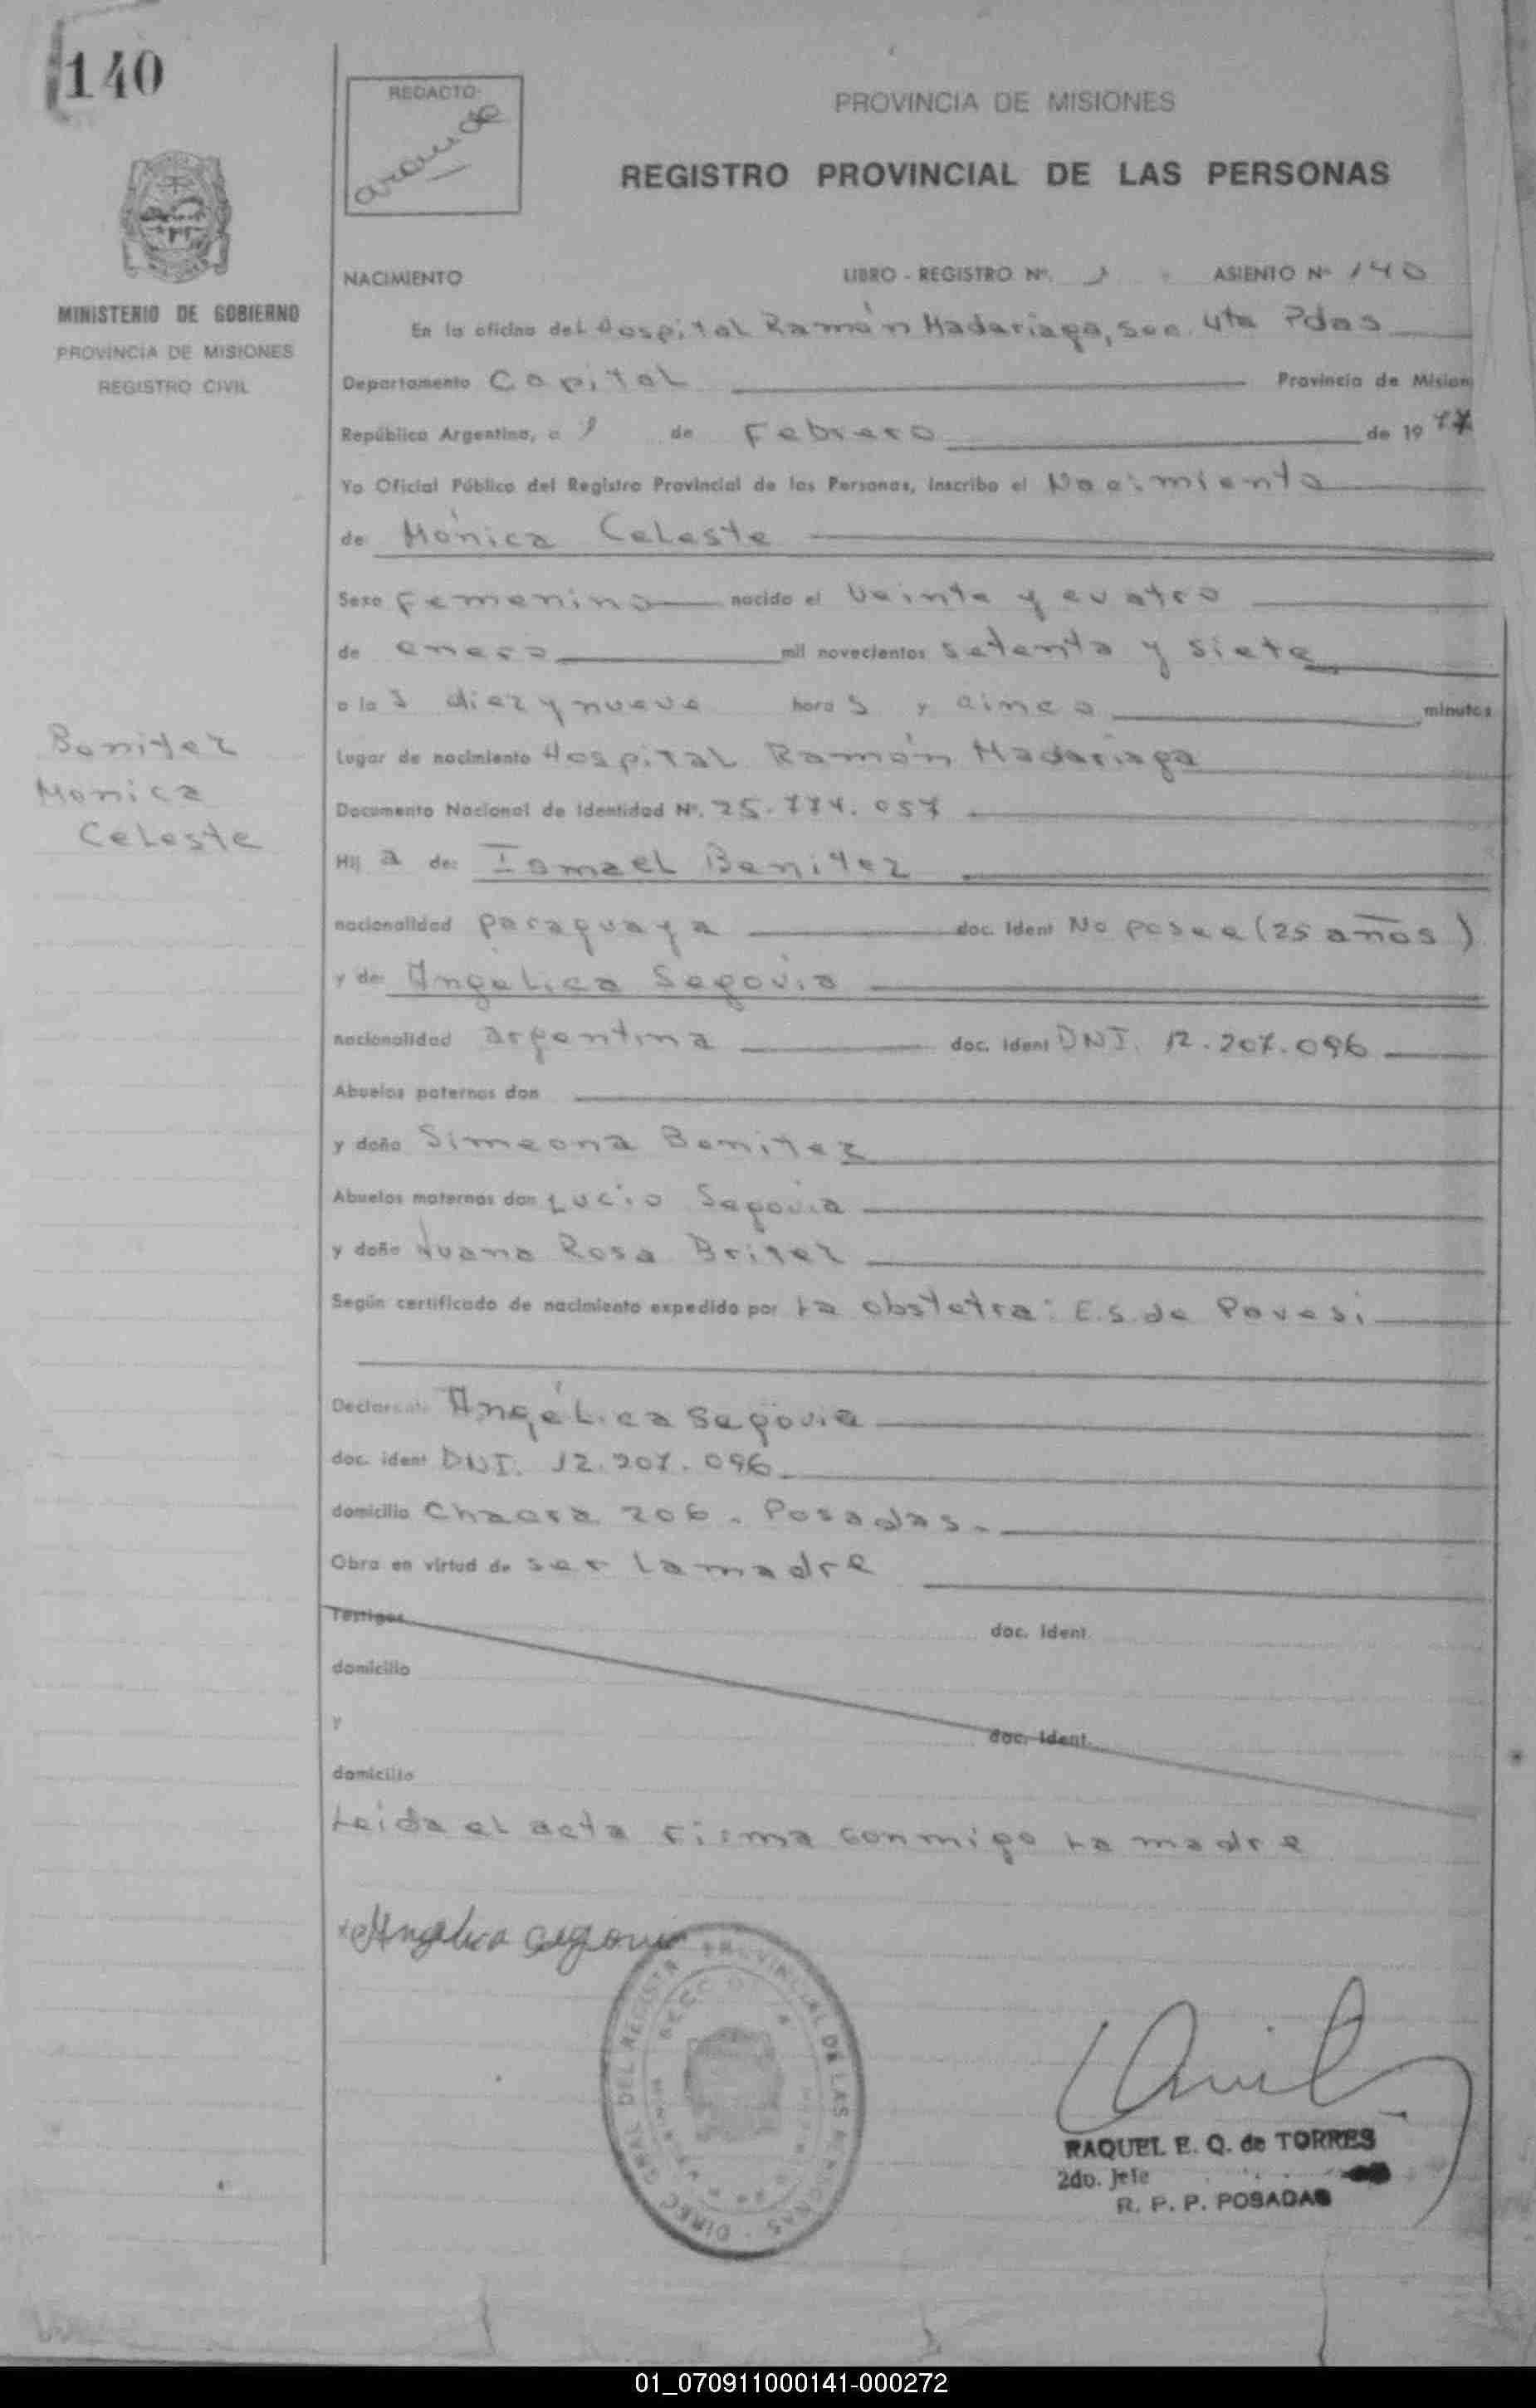 140
REDACTO
PROVINCIA DE MISIONES
REGISTRO PROVINCIAL DE LAS PERSONAS
MINISTERIO DE GOBIERNO
PROVINCIA DE MISIONES
REGISTRO CIVIL
NACIMIENTO LIBRO - REGISTRO Nº. 1 ASIENTO Nº 140
En la oficina del Hospital Ramón Madariaga, Sec. 4ta Pdas
Departamento Capital Provincia de Mision
República Argentina, a 1 de Febrero de 1977
Yo Oficial Público del Registro Provincial de las Personas, inscribo el Nacimiento
de Mónica Celeste
Sexo Femenino nacido el Veinte y cuatro
de enero mil novecientos setenta y siete
a las diez y nueve horas y cinco minutos
Benitez
Monica
Celeste
Lugar de nacimiento Hospital Ramón Madariaga
Documento Nacional de Identidad Nº. 25.774.057
Hij a de: Ismael Benitez
nacionalidad paraguaya doc. Ident No posee (25 años)
y de Angélica Segovia
nacionalidad argentina doc. Ident DNI. 12.207.096
Abuelos paternos don
y doña Simeona Benitez
Abuelos maternos don Lucio Segovia
y doña Juana Rosa Britez
Según certificado de nacimiento expedido por la obstetra: E.S. de Povesi
Declarante Angélica Segovia
doc. ident DNI. 12.207.096
domicilio Chacra 206. Posadas.
Obra en virtud de ser la madre
Testigos doc. Ident.
domicilio
y doc. Ident.
domicilio
Leida el acta firma conmigo la madre
Angelica Segovia
DIREC. GRAL. DEL REGISTRO PROVINCIAL DE LAS PERSONAS
RAQUEL E. Q. de TORRES
2do. Jefe
R. P. P. POSADAS
01_070911000141-000272